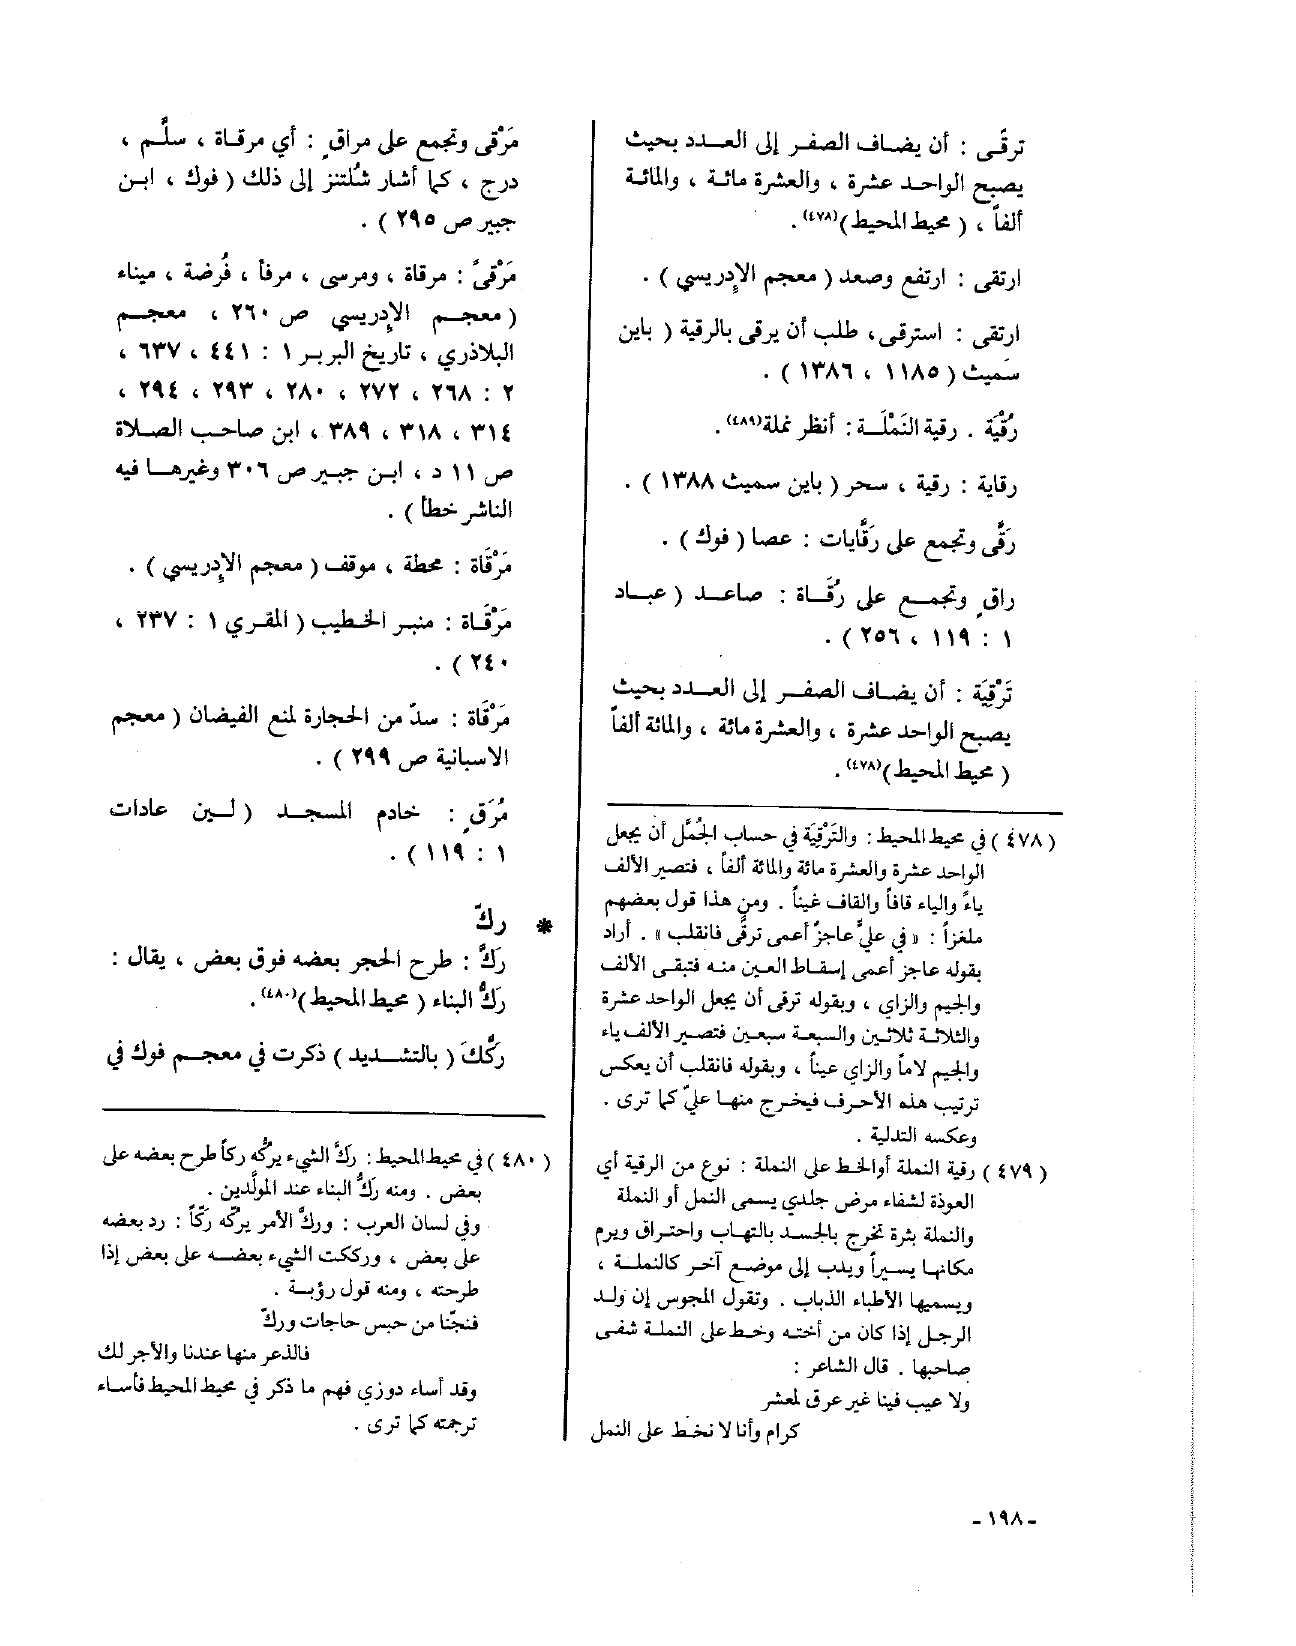 ترقَّى : أن يضاف الصفر إلى العدد بحيث
يصبح الواحد عشرة ، والعشرة مائة ، والمائة
ألفاً ، ( محيط المحيط )(٤٧٨).
ارتقى : ارتفع وصعد ( معجم الإدريسي ) .
ارتقى : استرقى، طلب أن يرقى بالرقية ( باين
سَميث ( ١١٨٥ ، ١٣٨٦ ) .
رُقْيَة . رقية النَمْلَة : أنظر نملة(٤٨٩).
رقاية : رقية ، سحر ( باين سميث ١٣٨٨ ) .
رَقَّى وتجمع على رَقَّايات : عصا ( فوك ) .
راقٍ وتجمع على رُقَاة : صاعد ( عباد
١ : ١١٩ ، ٢٥٦ ) .
تَرْقِيَة : أن يضاف الصفر إلى العدد بحيث
يصبح الواحد عشرة ، والعشرة مائة ، والمائة ألفاً
( محيط المحيط )(٤٧٨).
( ٤٧٨ ) في محيط المحيط : والتَرْقِيَة في حساب الجُمَّل أن يجعل
الواحد عشرة والعشرة مائة والمائة ألفاً ، فتصير الألف
ياءً والياء قافاً والقاف غيناً . ومن هذا قول بعضهم
ملغزاً : « في عليٍّ عاجزٌ أعمى ترقَّى فانقلب » . أراد
بقوله عاجز أعمى إسقاط العين منه فتبقى الألف
والجيم والزاي ، وبقوله ترقى أن يجعل الواحد عشرة
والثلاثة ثلاثين والسبعة سبعين فتصير الألف ياء
والجيم لاماً والزاي عيناً ، وبقوله فانقلب أن يعكس
ترتيب هذه الأحرف فيخرج منها عليّ كما ترى .
وعكسه التدلية .
( ٤٧٩ ) رقية النملة أوالخط على النملة : نوع من الرقية أي
العوذة لشفاء مرض جلدي يسمى النمل أو النملة
والنملة بثرة تخرج بالجسد بالتهاب واحتراق ويرم
مكانها يسيراً ويدب إلى موضع آخر كالنملة ،
ويسميها الأطباء الذباب . وتقول المجوس إن ولد
الرجل إذا كان من أخته وخط على النملة شفى
صاحبها . قال الشاعر :
ولا عيب فينا غير عرق لمعشر
كرام وأنا لا نخط على النمل
مَرْقى وتجمع على مراقٍ : أي مرقاة ، سلَّم ،
درج ، كما أشار شُلتنز إلى ذلك ( فوك ، ابن
جبير ص ٢٩٥ ) .
مَرْقىً : مرقاة ، ومرسى ، مرفأ ، فُرضة ، ميناء
( معجم الإدريسي ص ٢٦٠ ، معجم
البلاذري ، تاريخ البربر ١ : ٤٤١ ، ٦٣٧ ،
٢ : ٢٦٨ ، ٢٧٢ ، ٢٨٠ ، ٢٩٣ ، ٢٩٤ ،
٣١٤ ، ٣١٨ ، ٣٨٩ ، ابن صاحب الصلاة
ص ١١ د ، ابن جبير ص ٣٠٦ وغيرها فيه
الناشر خطأ ) .
مَرْقَاة : محطة ، موقف ( معجم الإدريسي ) .
مَرْقَاة : منبر الخطيب ( المقري ١ : ٢٣٧ ،
٢٤٠ ) .
مَرْقَاة : سدّ من الحجارة لمنع الفيضان ( معجم
الاسبانية ص ٢٩٩ ) .
مُرَقٍ : خادم المسجد ( لين عادات
١ : ١١٩ ) .
* ركّ
ركَّ : طرح الحجر بعضه فوق بعض ، يقال :
ركَّ البناء ( محيط المحيط )(٤٨٠).
ركَّكَ ( بالتشديد ) ذكرت في معجم فوك في
( ٤٨٠ ) في محيط المحيط : ركَّ الشيء يركُّه ركاً طرح بعضه على
بعض . ومنه ركَّ البناء عند المولَّدين .
وفي لسان العرب : وركَّ الأمر يركّه ركّاً : رد بعضه
على بعض ، ورككت الشيء بعضه على بعض إذا
طرحته ، ومنه قول رؤبة .
فنجّنا من حبس حاجات وركّ
فالذعر منها عندنا والأجر لك
وقد أساء دوزي فهم ما ذكر في محيط المحيط فأساء
ترجمته كما ترى .
- ١٩٨ -